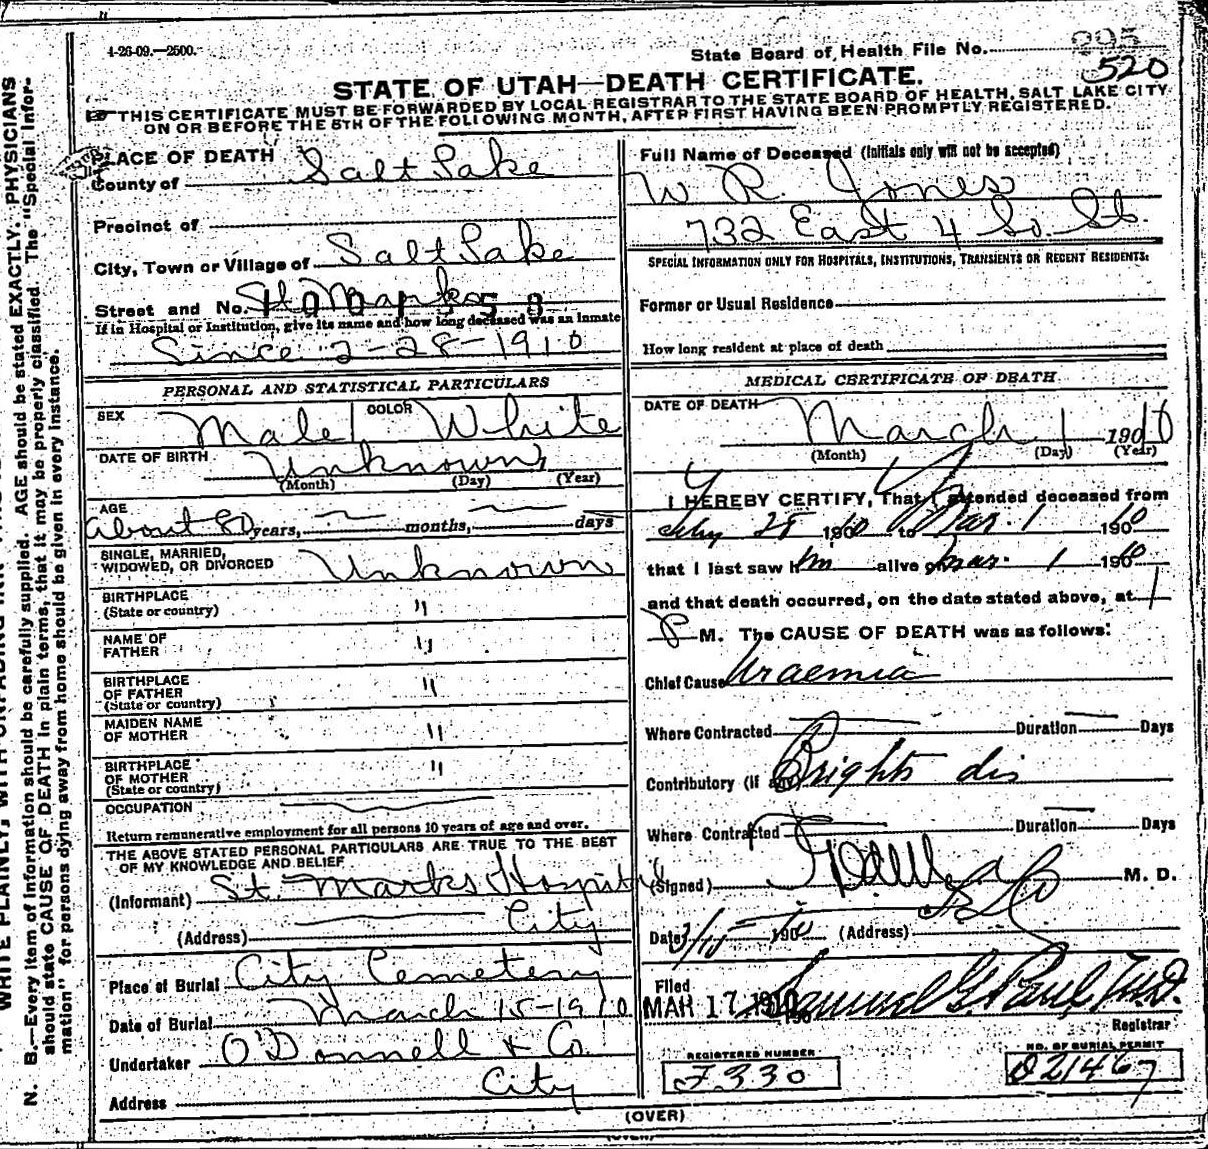 4-26-09.—2500.
State Board of Health File No. 295
520
STATE OF UTAH—DEATH CERTIFICATE.
THIS CERTIFICATE MUST BE FORWARDED BY LOCAL REGISTRAR TO THE STATE BOARD OF HEALTH, SALT LAKE CITY
ON OR BEFORE THE 5TH OF THE FOLLOWING MONTH, AFTER FIRST HAVING BEEN PROMPTLY REGISTERED.
PLACE OF DEATH
County of Salt Lake
Precinct of
City, Town or Village of Salt Lake
Street and No. St Marks
If in Hospital or Institution, give its name and how long deceased was an inmate
Since 2-28-1910
PERSONAL AND STATISTICAL PARTICULARS
SEX Male COLOR White
DATE OF BIRTH Unknown
(Month) (Day) (Year)
AGE
About 80 years, months, days
SINGLE, MARRIED,
WIDOWED, OR DIVORCED Unknown
BIRTHPLACE
(State or country) "
NAME OF
FATHER "
BIRTHPLACE
OF FATHER "
(State or country)
MAIDEN NAME
OF MOTHER "
BIRTHPLACE
OF MOTHER "
(State or country)
OCCUPATION
Return remunerative employment for all persons 10 years of age and over.
THE ABOVE STATED PERSONAL PARTICULARS ARE TRUE TO THE BEST
OF MY KNOWLEDGE AND BELIEF
(Informant) St. Marks Hospital
(Address) City
Place of Burial City Cemetery
Date of Burial March 15-1910
Undertaker O'Donnell & Co.
Address City
Full Name of Deceased (Initials only will not be accepted)
W R Jones
732 East 4 So. St.
SPECIAL INFORMATION ONLY FOR HOSPITALS, INSTITUTIONS, TRANSIENTS OR RECENT RESIDENTS:
Former or Usual Residence
How long resident at place of death
MEDICAL CERTIFICATE OF DEATH
DATE OF DEATH March 1 1910
(Month) (Day) (Year)
I HEREBY CERTIFY, That I attended deceased from
1910 to Mar. 1 1910
that I last saw him alive on Mar. 1 1910
and that death occurred, on the date stated above, at 1
P M. The CAUSE OF DEATH was as follows:
Chief Cause Uraemia
Where Contracted Duration Days
Contributory (if any) Brights dis
Where Contracted Duration Days
(Signed) M. D.
Date 3/15 1910 (Address)
Filed
MAR 17 1910 Samuel G. Paul, M.D.
Registrar
REGISTERED NUMBER
NO. OF BURIAL PERMIT
J330
021467
(OVER)
N. B.—Every item of information should be carefully supplied. AGE should be stated EXACTLY. PHYSICIANS
should state CAUSE OF DEATH in plain terms, that it may be properly classified. The "Special Infor-
mation" for persons dying away from home should be given in every instance.